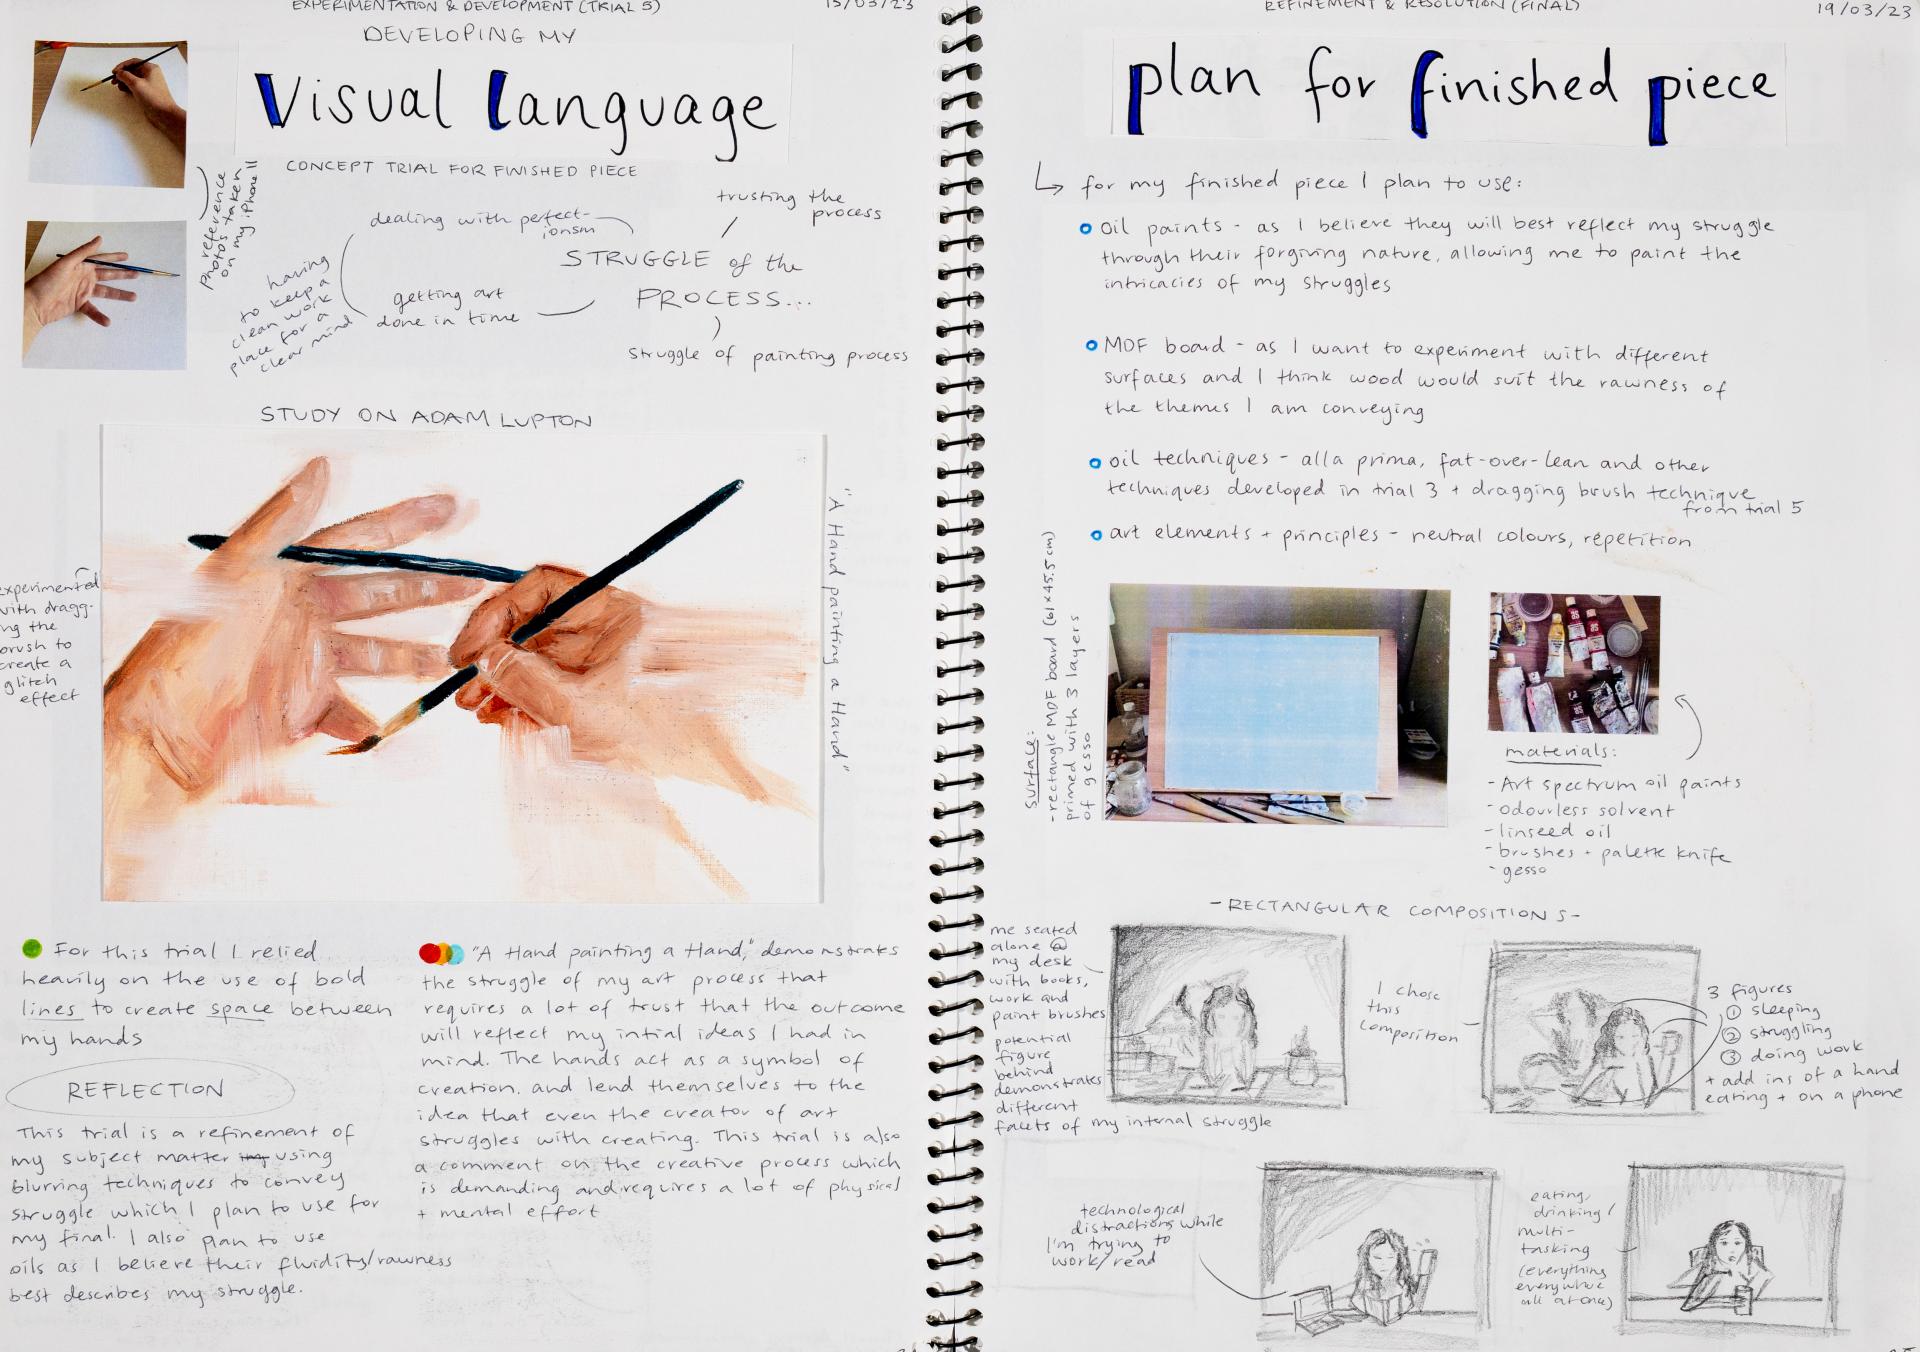 EXPERIMENTATION & DEVELOPMENT (TRIAL 5)
15/03/23
DEVELOPING MY
Visual language
CONCEPT TRIAL FOR FINISHED PIECE
reference
photos taken
on my iPhone 11
dealing with perfect-
ionsm
trusting the
process
STRUGGLE of the
PROCESS...
having
to keep a
clean work
place for a
clear mind
getting art
done in time
struggle of painting process
STUDY ON ADAM LUPTON
"A Hand painting a Hand"
experimented
with dragg-
ing the
brush to
create a
glitch
effect
For this trial I relied
heavily on the use of bold
lines to create space between
my hands
REFLECTION
This trial is a refinement of
my subject matter using
blurring techniques to convey
struggle which I plan to use for
my final. I also plan to use
oils as I believe their fluidity/rawness
best describes my struggle.
"A Hand painting a Hand," demonstrates
the struggle of my art process that
requires a lot of trust that the outcome
will reflect my intial ideas I had in
mind. The hands act as a symbol of
creation. and lend themselves to the
idea that even the creator of art
struggles with creating. This trial is also
a comment on the creative process which
is demanding and requires a lot of physical
+ mental effort
REFINEMENT & RESOLUTION (FINAL)
19/03/23
plan for finished piece
for my finished piece I plan to use:
oil paints - as I believe they will best reflect my struggle
through their forgiving nature, allowing me to paint the
intricacies of my struggles
MDF board - as I want to experiment with different
surfaces and I think wood would suit the rawness of
the themes I am conveying
oil techniques - alla prima, fat-over-lean and other
techniques developed in trial 3 + dragging brush technique
from trial 5
art elements + principles - neutral colours, repetition
Surface:
- rectangle MDF board (61 x 45.5 cm)
primed with 3 layers
of gesso
materials:
- Art spectrum oil paints
- odourless solvent
- linseed oil
- brushes + palette knife
- gesso
- RECTANGULAR COMPOSITIONS -
me seated
alone @
my desk
with books,
work and
paint brushes
potential
figure
behind
demonstrates
different
facets of my internal struggle
I chose
this
composition
3 figures
① sleeping
② struggling
③ doing work
+ add ins of a hand
eating + on a phone
technological
distractions while
I'm trying to
work/read
eating,
drinking/
multi-
tasking
(everything
everywhere
all at once)